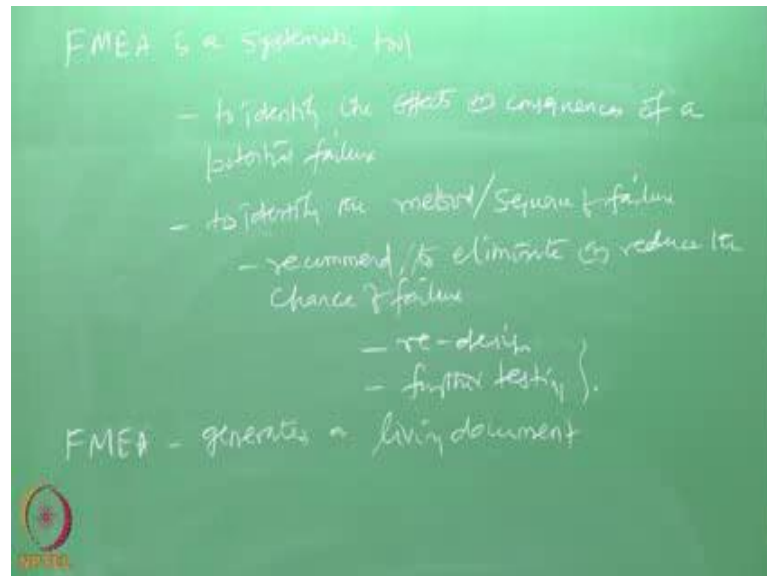 FMEA is a systematic tool
- to identify the effects or consequences of a
potential failure
- to identify the method/sequence of failure
- recommend/to eliminate or reduce the
chance of failure
- re-design
- further testing }.
FMEA - generates a living document
NPTEL